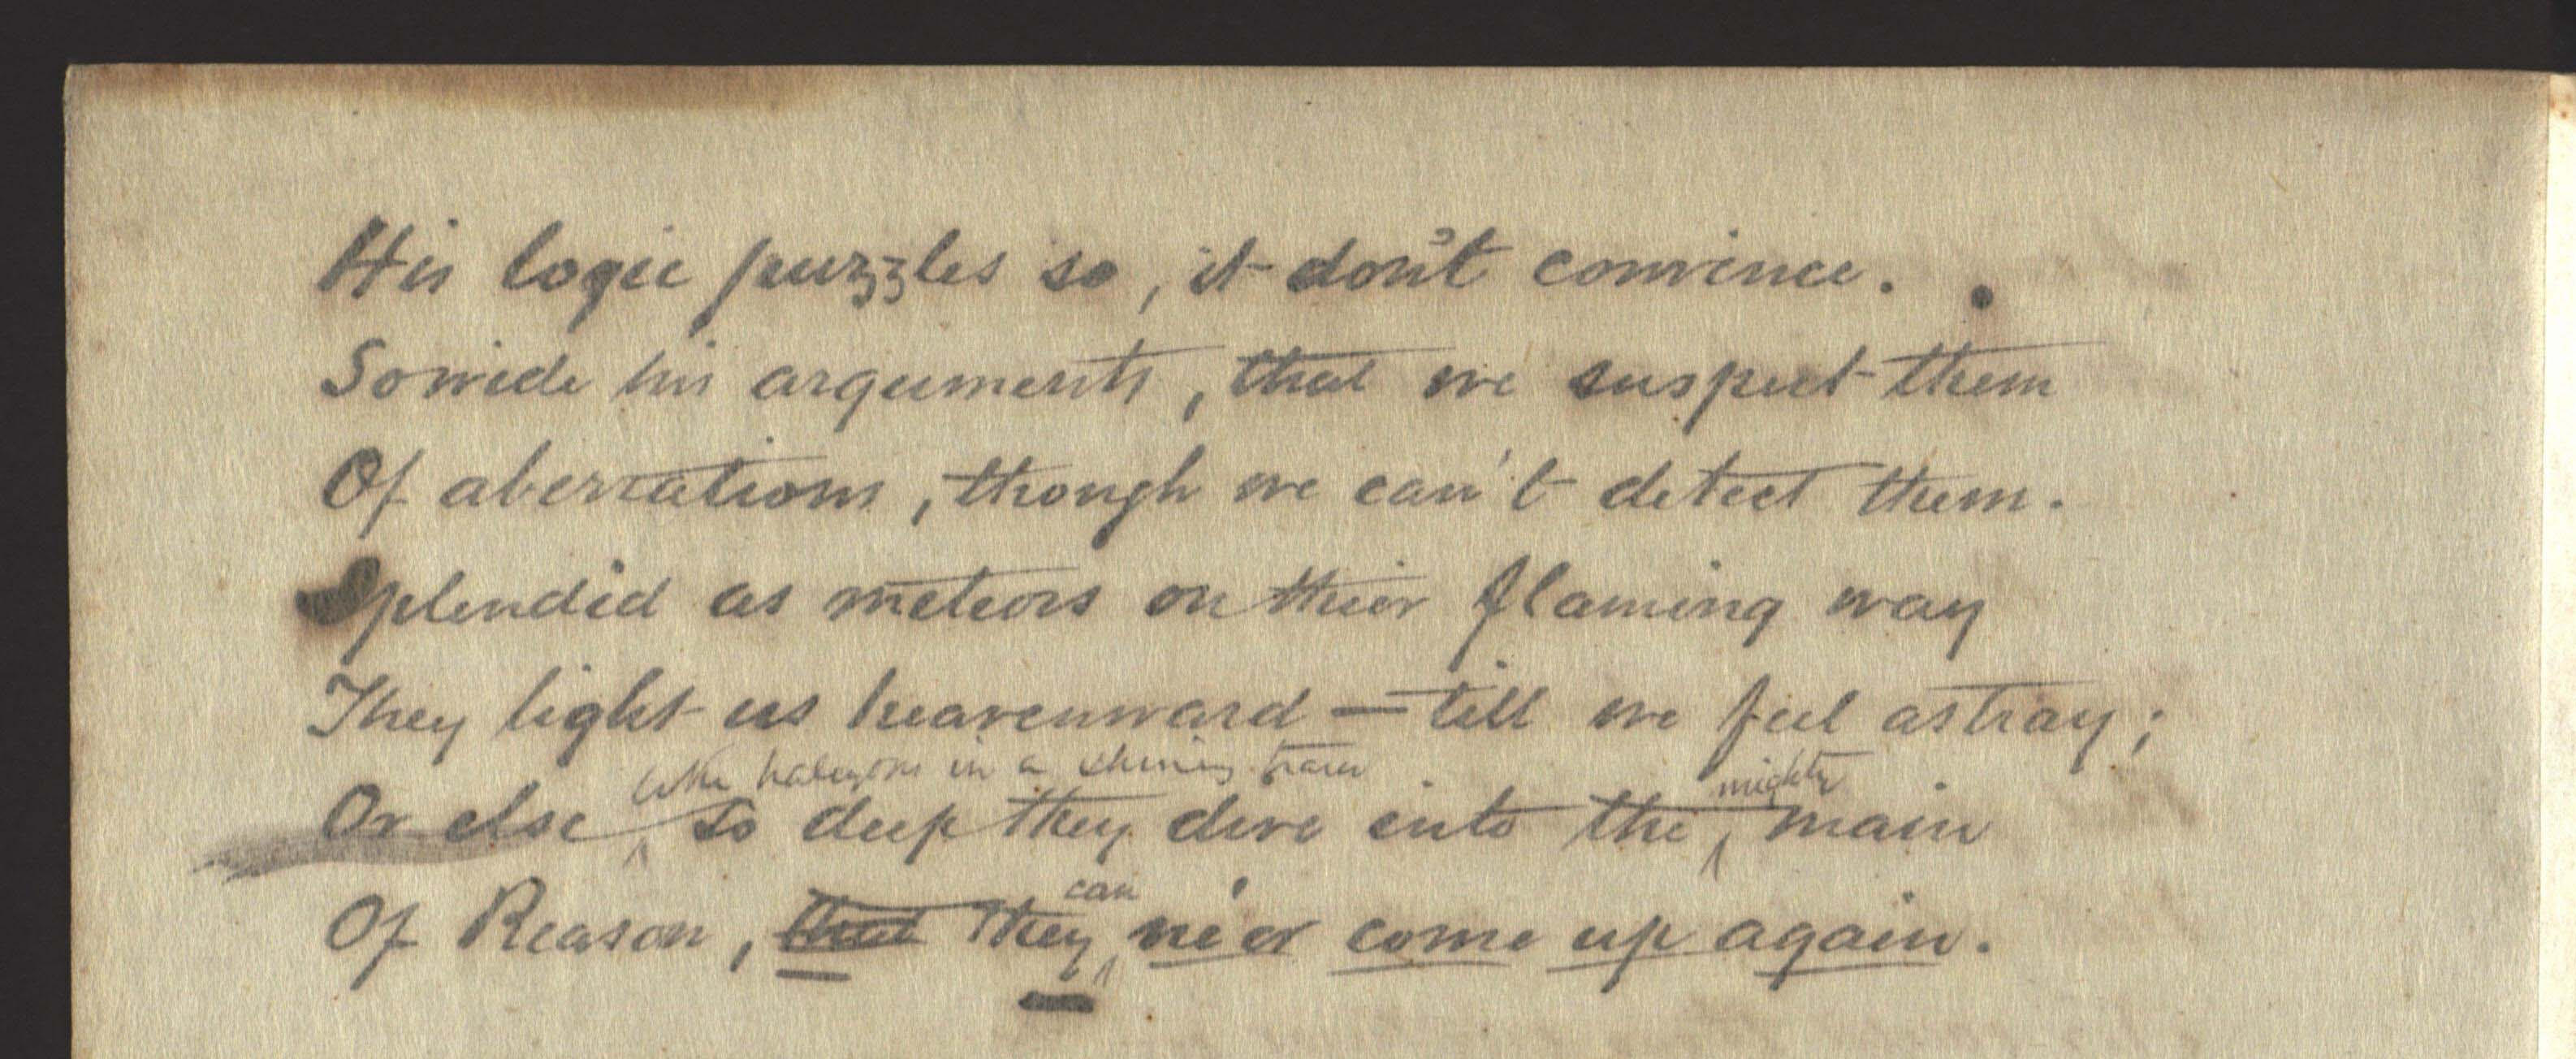 His logic puzzles so, it don't convince.
So wide his arguments, that we suspect them
Of aberrations, though we can't detect them.
Splendid as meteors on their flaming way
They light us heavenward – till we feel astray;
like halcyons in a shining train
mighty
Or else, so deep they dive into the main
can
Of Reason, that they ne'er come up again.